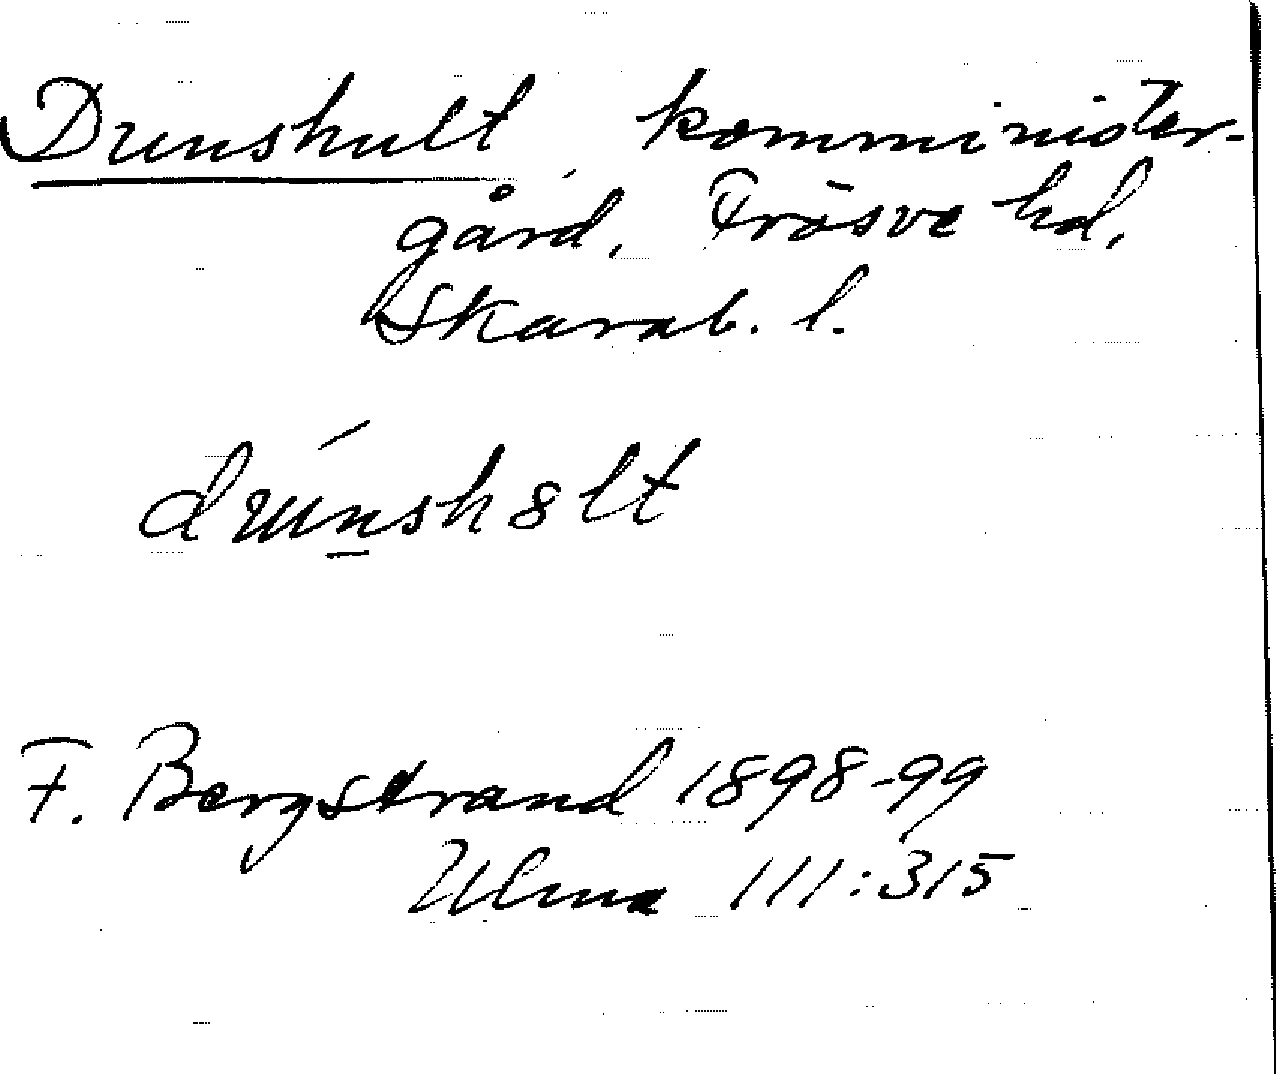 Drunshult, komminister-
gård, Frösve hd,
Skarab. l.
drunsh8lt
F. Bergstrand 1898-99
Ulma 111:315